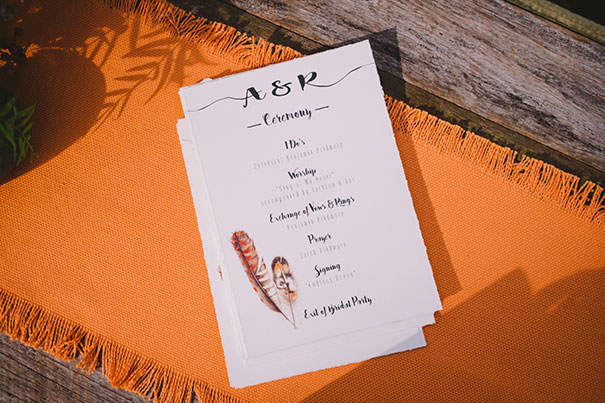 A & R
Ceremony
I Do's
Celebrant Benjamin Hardware
Worship
"King of My Heart"
accompanied by Jackson & Dan
Exchange of Vows & Rings
Benjamin Hardware
Prayer
Sarah Hardware
Signing
"Endless Ocean"
Exit of Bridal Party